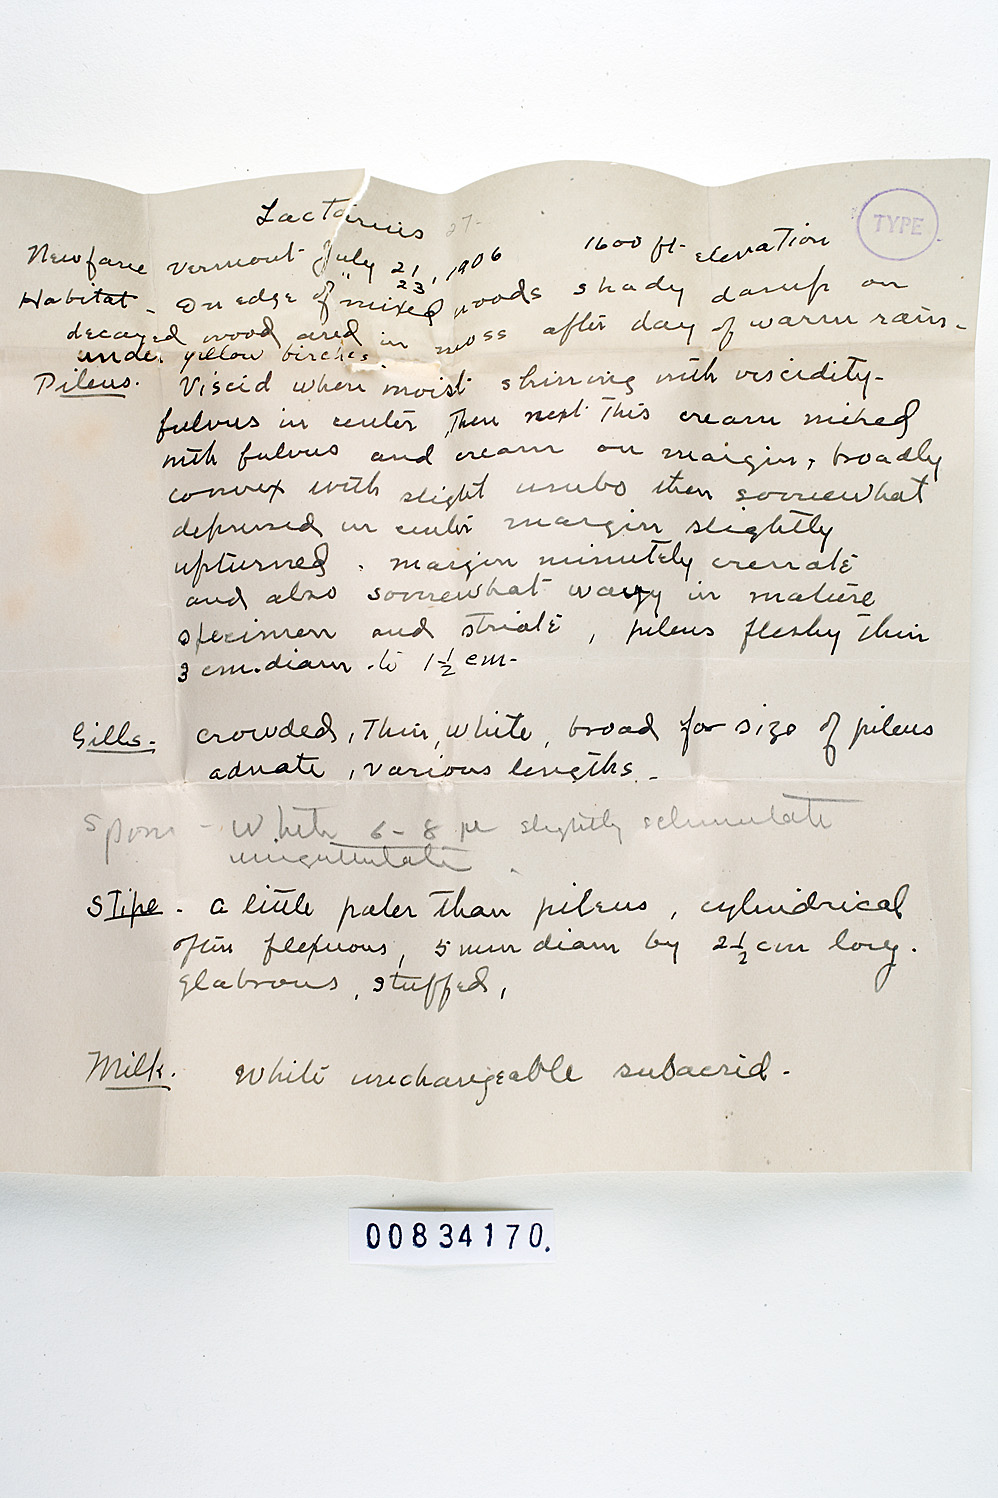 Lactarius 27-
TYPE
Newfane Vermont July 21, 1906 1600 ft. elevation
" 23
Habitat - On edge of mixed woods shady damp on
decayed wood and in moss after day of warm rain-
under yellow birches
Pileus. Viscid when moist shining with viscidity-
fulvus in center, then next this cream mixed
with fulvus and cream on margin, broadly
convex with slight umbo then somewhat
depressed in center margin slightly
upturned. margin minutely crenate
and also somewhat wavy in mature
specimen and striate, pileus fleshy thin
3 cm. diam. to 1 1/2 cm-
Gills- crowded, Thin, white, broad for size of pileus
adnate, various lengths.
Spores - White 6-8 µ slightly echinulate
uniguttulate
Stipe - a little paler than pileus, cylindrical
often flexuous, 5 mm diam by 2 1/2 cm long.
glabrous, stuffed,
Milk. White unchangeable subacrid.
00834170.